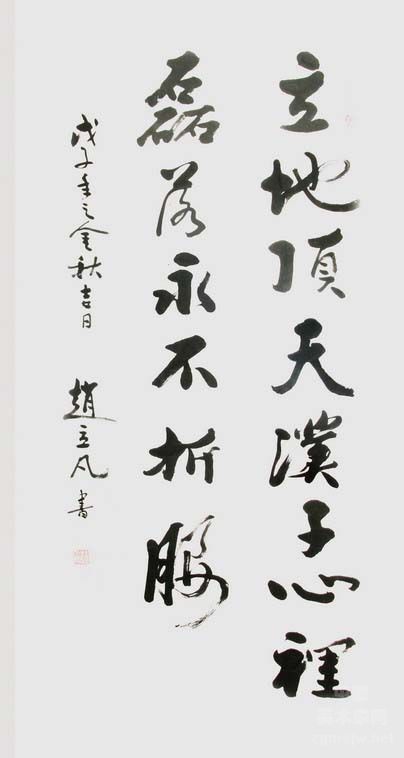 立地頂天漢子心裡
磊落永不折腰
戊子年之金秋吉日
趙立凡書